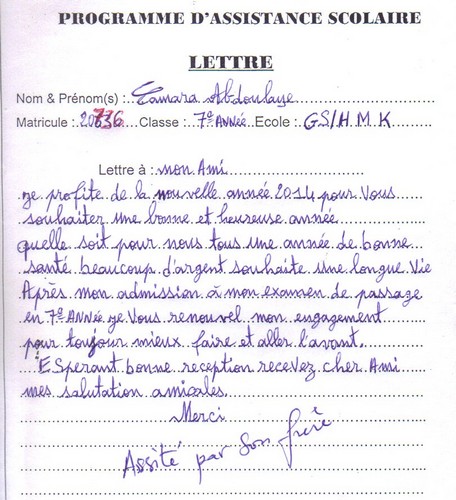 PROGRAMME D'ASSISTANCE SCOLAIRE
LETTRE
Nom & Prénom(s) : Camara Abdoulaye
Matricule : 20836 Classe : 7e ANNÉE Ecole : GS/H M K
Lettre à : mon Ami
je profite de la nouvelle année 2014 pour Vous
souhaiter une bonne et heureuse année
quelle soit pour nous tous une année de bonne
santé beaucoup d'argent souhaite une longue Vie
Après mon admission à mon examen de passage
en 7e ANNÉE je Vous renouvel mon engagement
pour toujour mieux faire et aller l'avant.
ESperant bonne reception recevez cher Ami
mes salutation amicales.
Merci
Assité par son frère